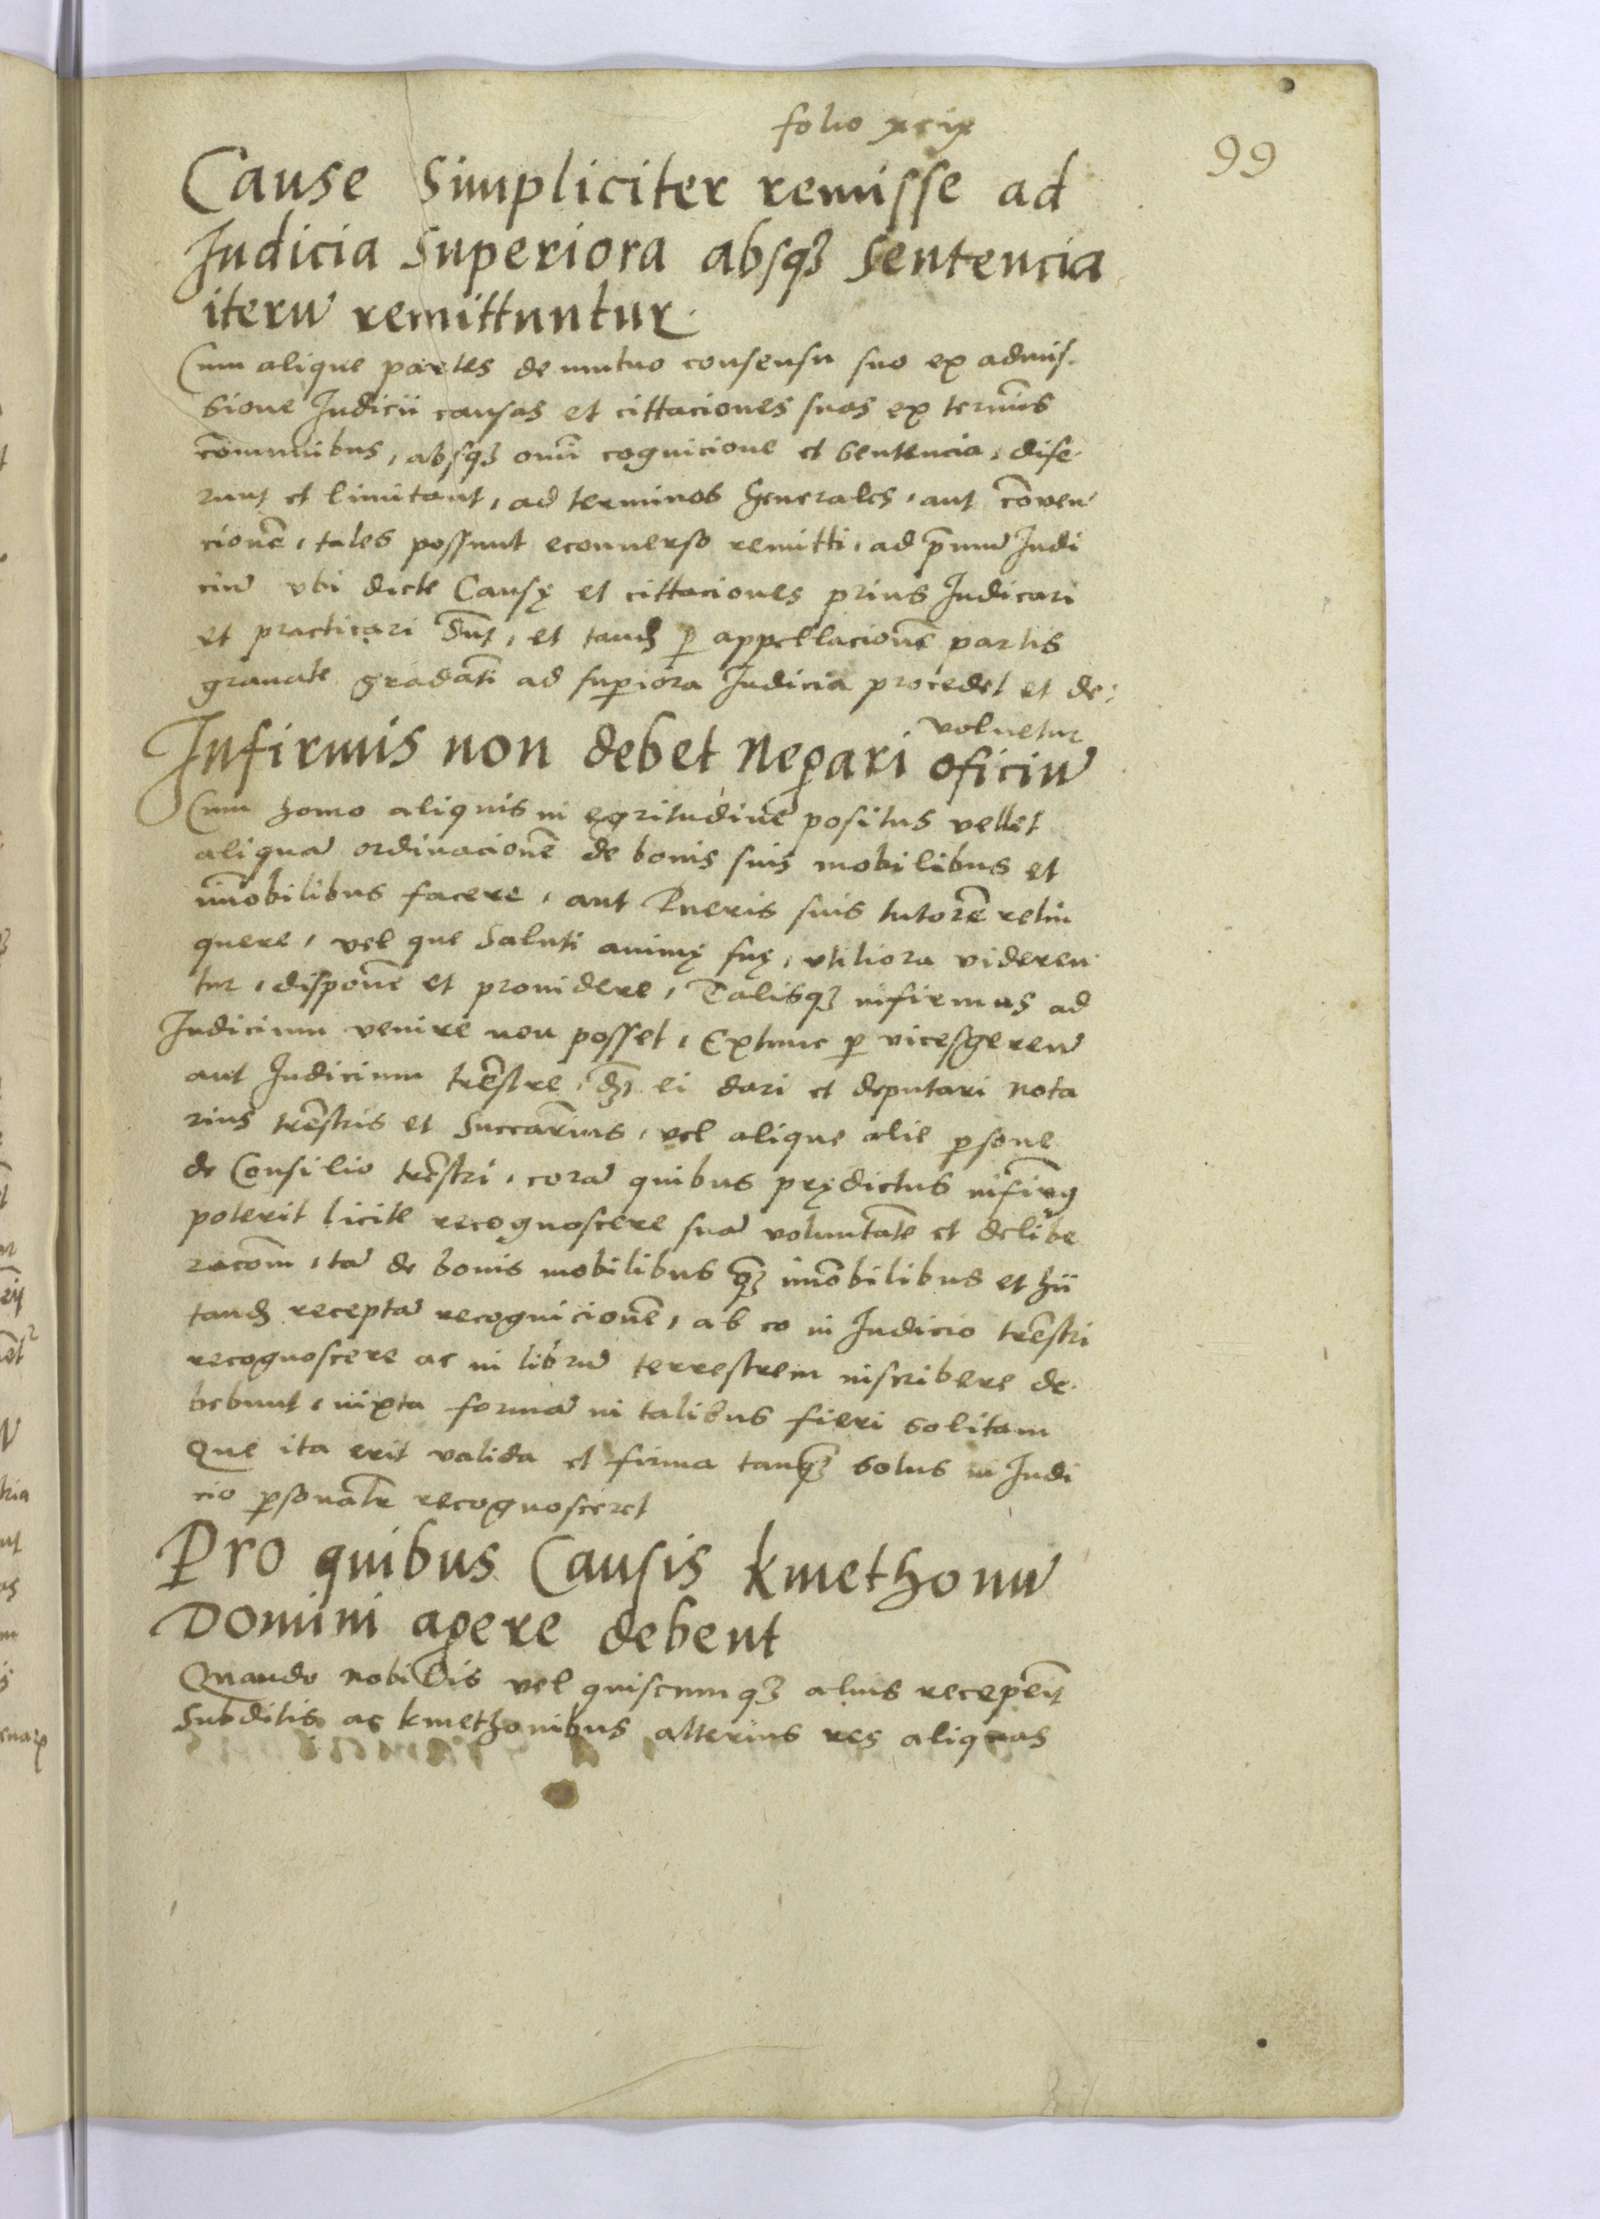 folio xcix
99
Cause Simpliciter remisse ad
Judicia Superiora absq3 Sentencia
iterũ remittuntur.
Cum alique partes de mutuo consensu suo ex admis-
sione Judicii causas et cittaciones suas ex terminis
cõmunibus, absq3 omni cognicione et sentencia, dife-
runt et limitant, ad terminos Generales, aut cõven
cionẽ, tales possunt econuerso remitti, ad prmum Judi
ciũ vbi dicte Causę et cittaciones prius Judicari
et practicari Sũt, et tandẽ p appellacionẽ partis
grauate gradatĩ ad supiora Judicia procedet et de-
voluetur
Infirmis non debet negari oficiũ
Cum homo aliquis in egritudine positus vellet
aliquã ordinacionẽ de bonis suis mobilibus et
imõbilibus facere, aut Pueris suis tutorẽ relin
quere, vel que Saluti animę suę, vtiliora videren
tur, disponẽ et prouidere, Talisq3 infirmus ad
Judicium venire non posset, Extunc p vicesgerenũ
aut Judicium trẽstre, dz ei dari et deputari nota
rius trẽstris et Succarĩus, vel alique alie psone
de Consilio trẽstri, corã quibus prędictus infirmg
poterit licite recognoscere suã voluntatẽ et delibe
racom̃, tã de bonis mobilibus q3 imõbilibus et hii
tandẽ receptã recognicionẽ, ab eo in Judicio trẽstri
recognoscere ac in librũ terrestrem inscribere de-
bebunt, iuxta formã in talibus fieri solitam
Que ita erit valida et firma tanq3 solus in Judi
cio psonalr recognosceret
Pro quibus Causis kmethonũ
Domini agere debent
Quando nobilis vel quiscumq3 alius recepeĩt
Subditis ac kmethonibus alterius res aliquas